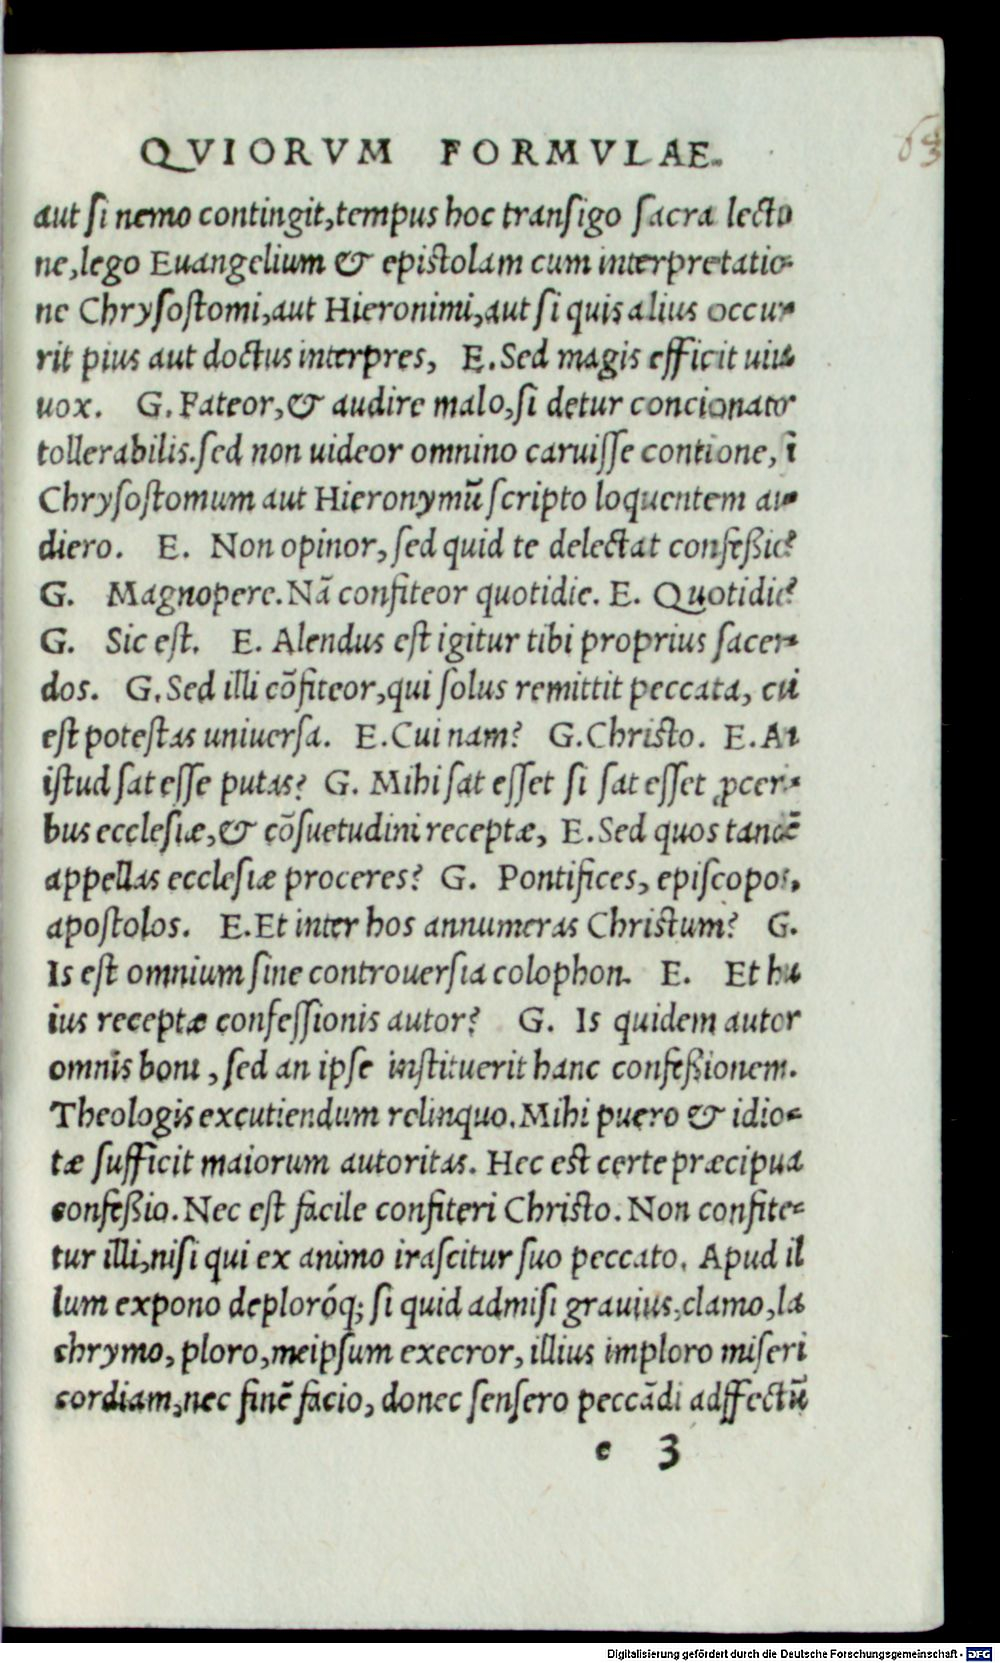 QVIORVM FORMVLAE.
63
aut si nemo contingit, tempus hoc transigo sacra lectio
ne, lego Euangelium & epistolam cum interpretatio-
ne Chrysostomi, aut Hieronimi, aut si quis alius occur-
rit pius aut doctus interpres, E. Sed magis efficit uiua
uox. G. Fateor, & audire malo, si detur concionator
tollerabilis. sed non uideor omnino caruisse contione, si
Chrysostomum aut Hieronymū scripto loquentem au-
diero. E. Non opinor, sed quid te delectat confeßio?
G. Magnopere. Nā confiteor quotidie. E. Quotidie?
G. Sic est. E. Alendus est igitur tibi proprius sacer-
dos. G. Sed illi cōfiteor, qui solus remittit peccata, cui
est potestas uniuersa. E. Cui nam? G. Christo. E. An
istud sat esse putas? G. Mihi sat esset si sat esset ꝓceri-
bus ecclesiæ, & cōsuetudini receptæ, E. Sed quos tandē
appellas ecclesiæ proceres? G. Pontifices, episcopos,
apostolos. E. Et inter hos annumeras Christum? G.
Is est omnium sine controuersia colophon. E. Et hu
ius receptæ confessionis autor? G. Is quidem autor
omnis boni, sed an ipse instituerit hanc confeßionem.
Theologis excutiendum relinquo. Mihi puero & idio-
tæ sufficit maiorum autoritas. Hec est certe præcipua
confeßio. Nec est facile confiteri Christo. Non confite-
tur illi, nisi qui ex animo irascitur suo peccato. Apud il
lum expono deploróq; si quid admisi grauius, clamo, la
chrymo, ploro, meipsum execror, illius imploro miseri
cordiam, nec finē facio, donec sensero peccādi adffectū
e 3
Digitalisierung gefördert durch die Deutsche Forschungsgemeinschaft - DFG